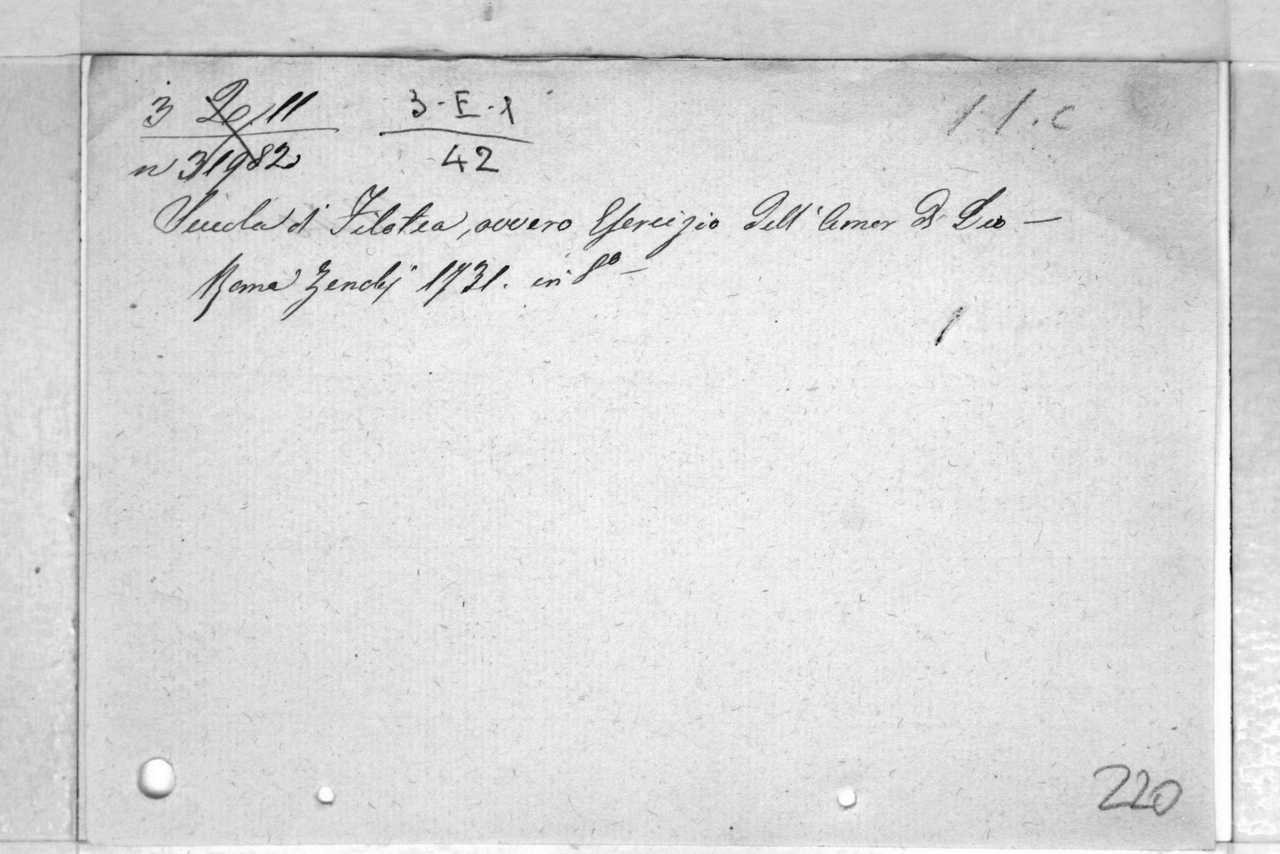 3 2 11 3-E-1
n 31982 42
Scuola di Filotea, ovvero Esercizio Dell' Amor Di Dio —
Roma Zenobj 1731. in 8º —
220